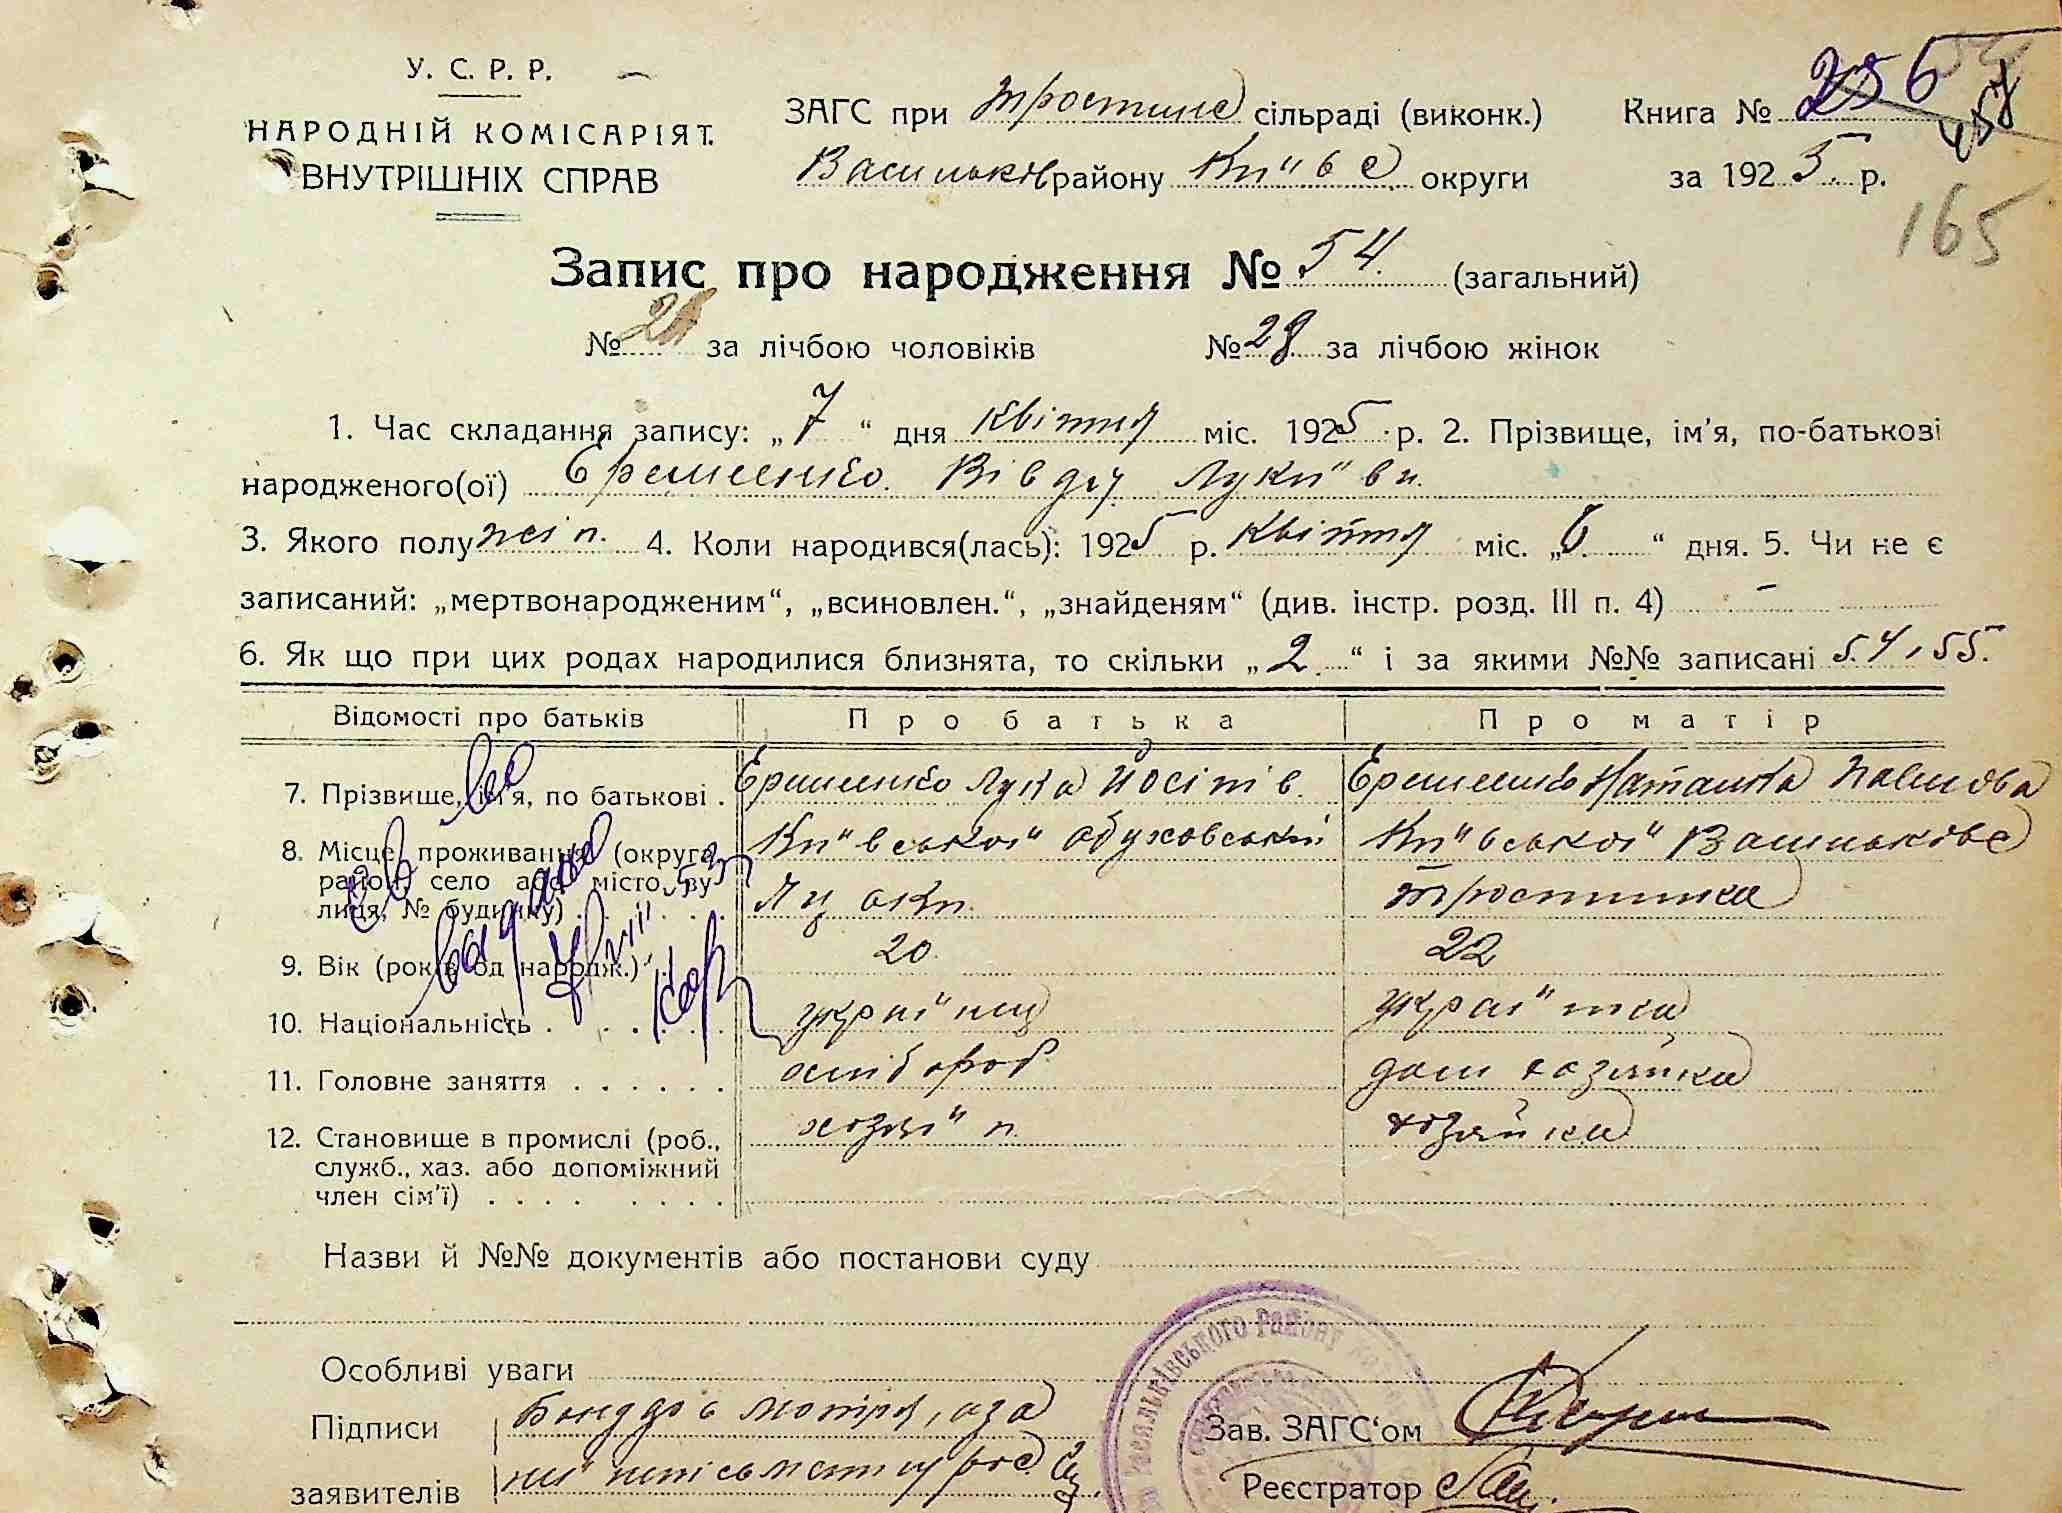 У. С. Р. Р.
НАРОДНІЙ КОМІСАРІЯТ.
ВНУТРІШНІХ СПРАВ
ЗАГС при Тростинс сільраді (виконк.)
Васильків району Київс округи
Книга № 256
457
за 1925 р.
165
Запис про народження № 54. (загальний)
№ за лічбою чоловіків
№ 28 за лічбою жінок
1. Час складання запису: „7“ дня квітня міс. 1925 р. 2. Прізвище, ім'я, по-батькові
народженого(ої) Єременко Вівдя Луківн.
3. Якого полу жін. 4. Коли народився(лась): 1925 р. Квітня міс. „6“ дня. 5. Чи не є
записаний: „мертвонародженим“, „всиновлен.“, „знайденям“ (див. інстр. розд. III п. 4) -
6. Як що при цих родах народилися близнята, то скільки „2“ і за якими №№ записані 54, 55.
Відомості про батьків
Про батька
Про матір
7. Прізвище, ім'я, по батькові . Єременко Лука Йосіпів. Єременко Наталка Павлова
8. Місце проживання (округа, Київської Обуховський Київської Васильківс
район, село або місто, ву
лиця, № будинку) . . . . Тростинка
9. Вік (років од народж.) . . 20 22
10. Національність . . . . . . україниц україінка
11. Головне заняття . . . . . . хлібороб дом хозяйка
12. Становище в промислі (роб., хозяїн хозяйка
служб., хаз. або допоміжний
член сім'ї) . . . . . . . . .
Назви й №№ документів або постанови суду
Особливі уваги
Підписи Мотря, а за
заявителів неї неписьменну рос.
Зав. ЗАГС'ом
Реєстратор
Васильківського Району